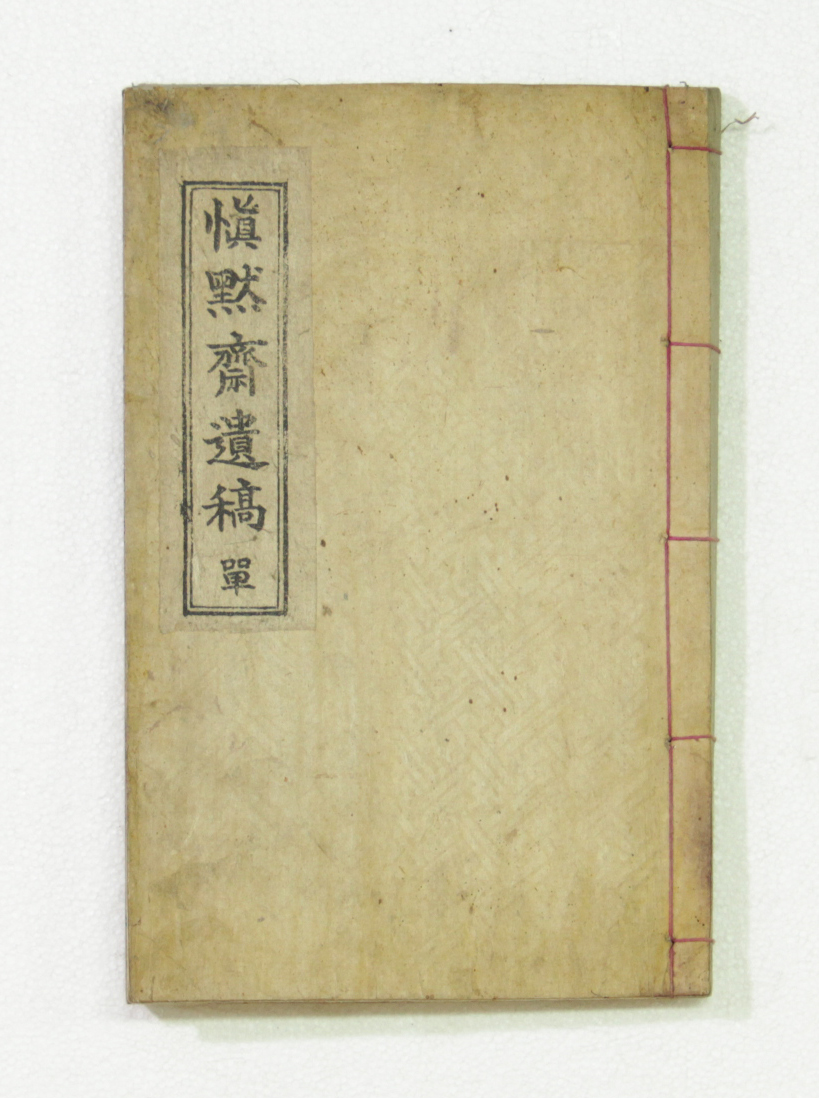 愼默齋遺稿 單